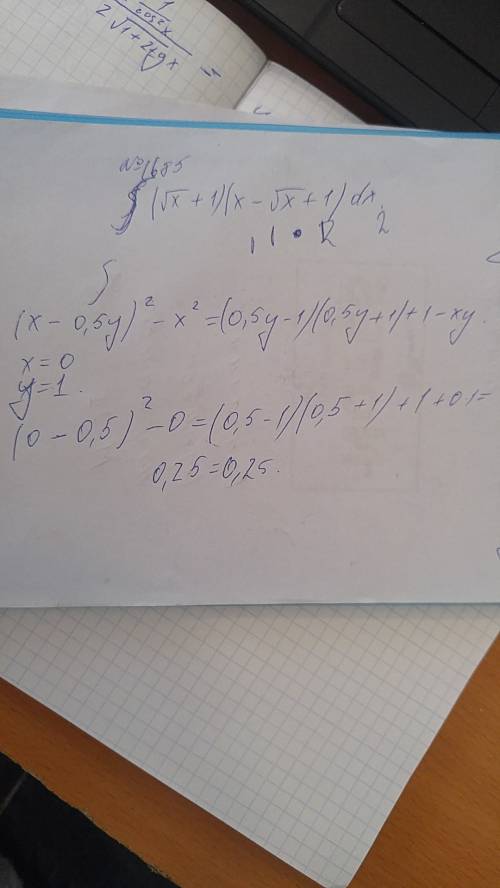 1
cos²x
2√1+2tgx =
№1685
∫ (√x + 1)(x - √x + 1) dx.
2
∫
(x - 0,5y)² - x² = (0,5y-1)(0,5y+1)+1-xy.
x=0
y=1.
(0 - 0,5)² - 0 = (0,5-1)(0,5+1)+1+0·1=
0,25=0,25.